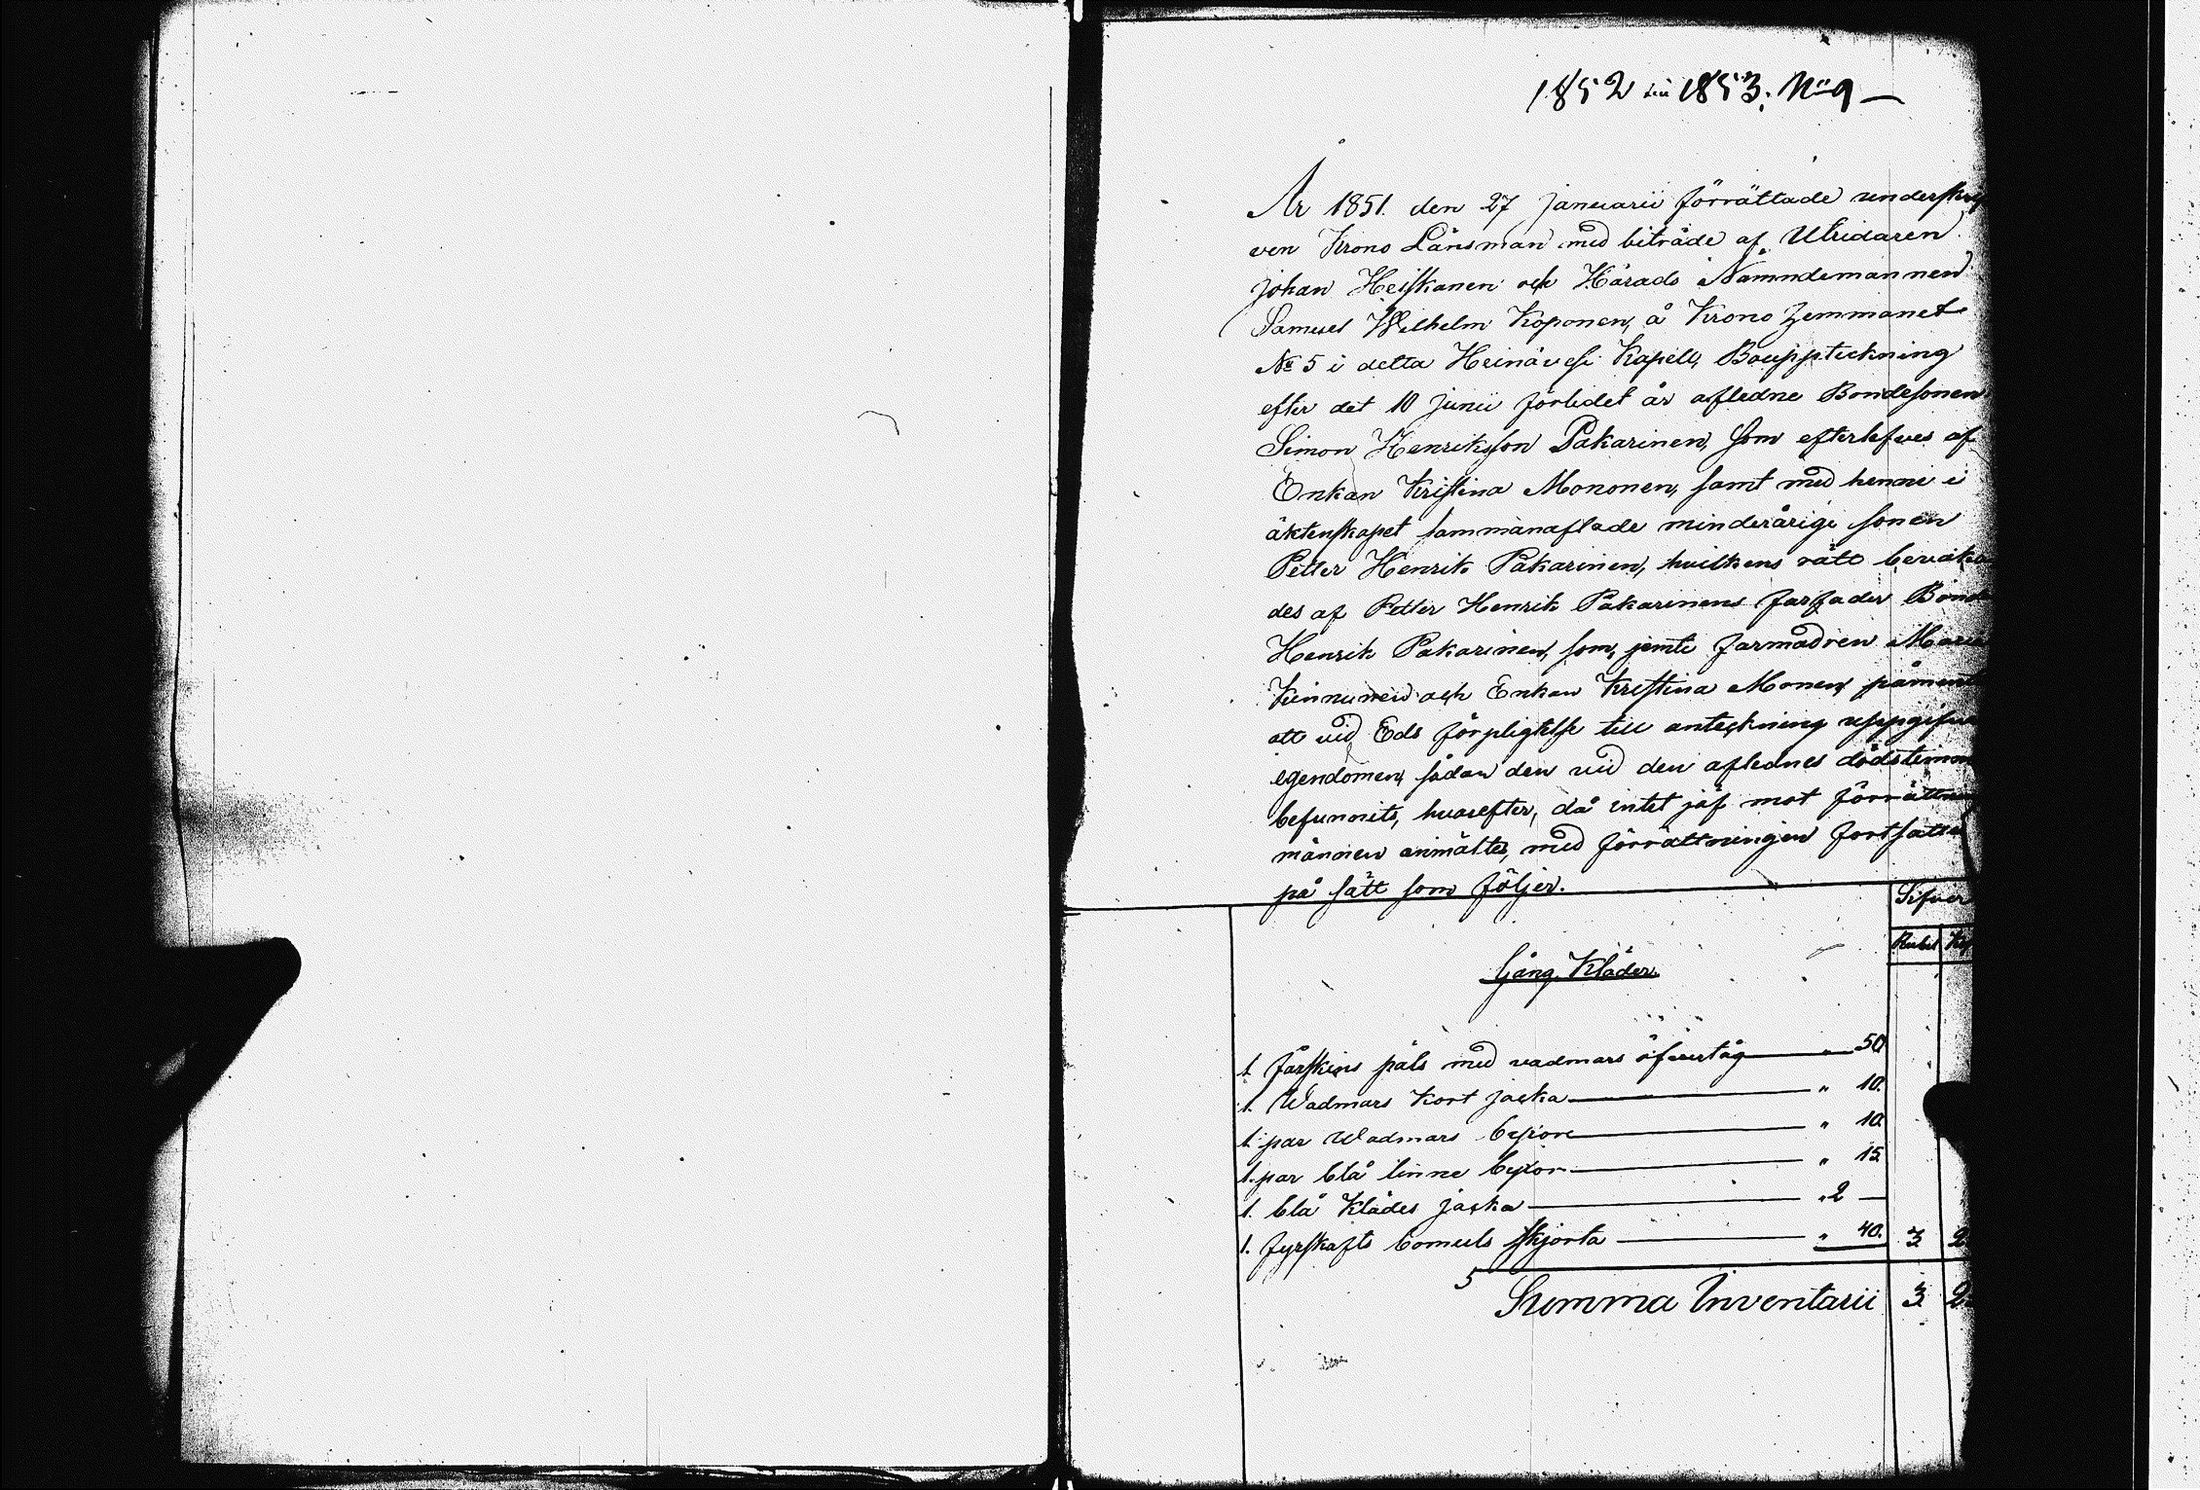 1852 1853. No 9
År 1851. den 27 Januarii förrättade underskrif
ven Krono Länsman med biträde af Utridaren
Johan Heiskanen och Härads Nämndemannen
Samuel Wilhelm Koponen, å Krono Hemmanet
No 5 i detta Heinävesi Kapell, Bouppteckning
efter det 10 Junii förledet år afledne Bondesonen
Simon Henriksson Pakarinen, som efterlefves af
Enkan Kristina Mononen, samt med henne i
äktenskapet sammanaflade minderårige sonen
Petter Henrik Pakarinen, hvilkens rätt bevaka
des af Petter Henrik Pakarinens farfader Bonde
Henrik Pakarinen, som, jemte farmodren Maria
Kinnunen och Enkan Kristina Monen, påmint
att vid Eds förpligtelse till anteckning uppgifva
egendomen, sådan den vid den aflednes dödstimma
befunnits, hvarefter, då intet jäf mot förrättnings
männen anmältes, med förrättningen fortsattes
på sätt som följer.
Silfver
Rubel Kop
Gång Kläder
1. Fårskins päls med vadmars öfvertåg " 50
1. Wadmars Kort jacka " 10.
1. par Wadmars byxor " 10.
1. par blå linne byxor " 15
1. blå Klädes jacka " 2 —
1. fyrskafts bomuls skjorta " 40. 3 2
5
Summa Inventarii 3 2